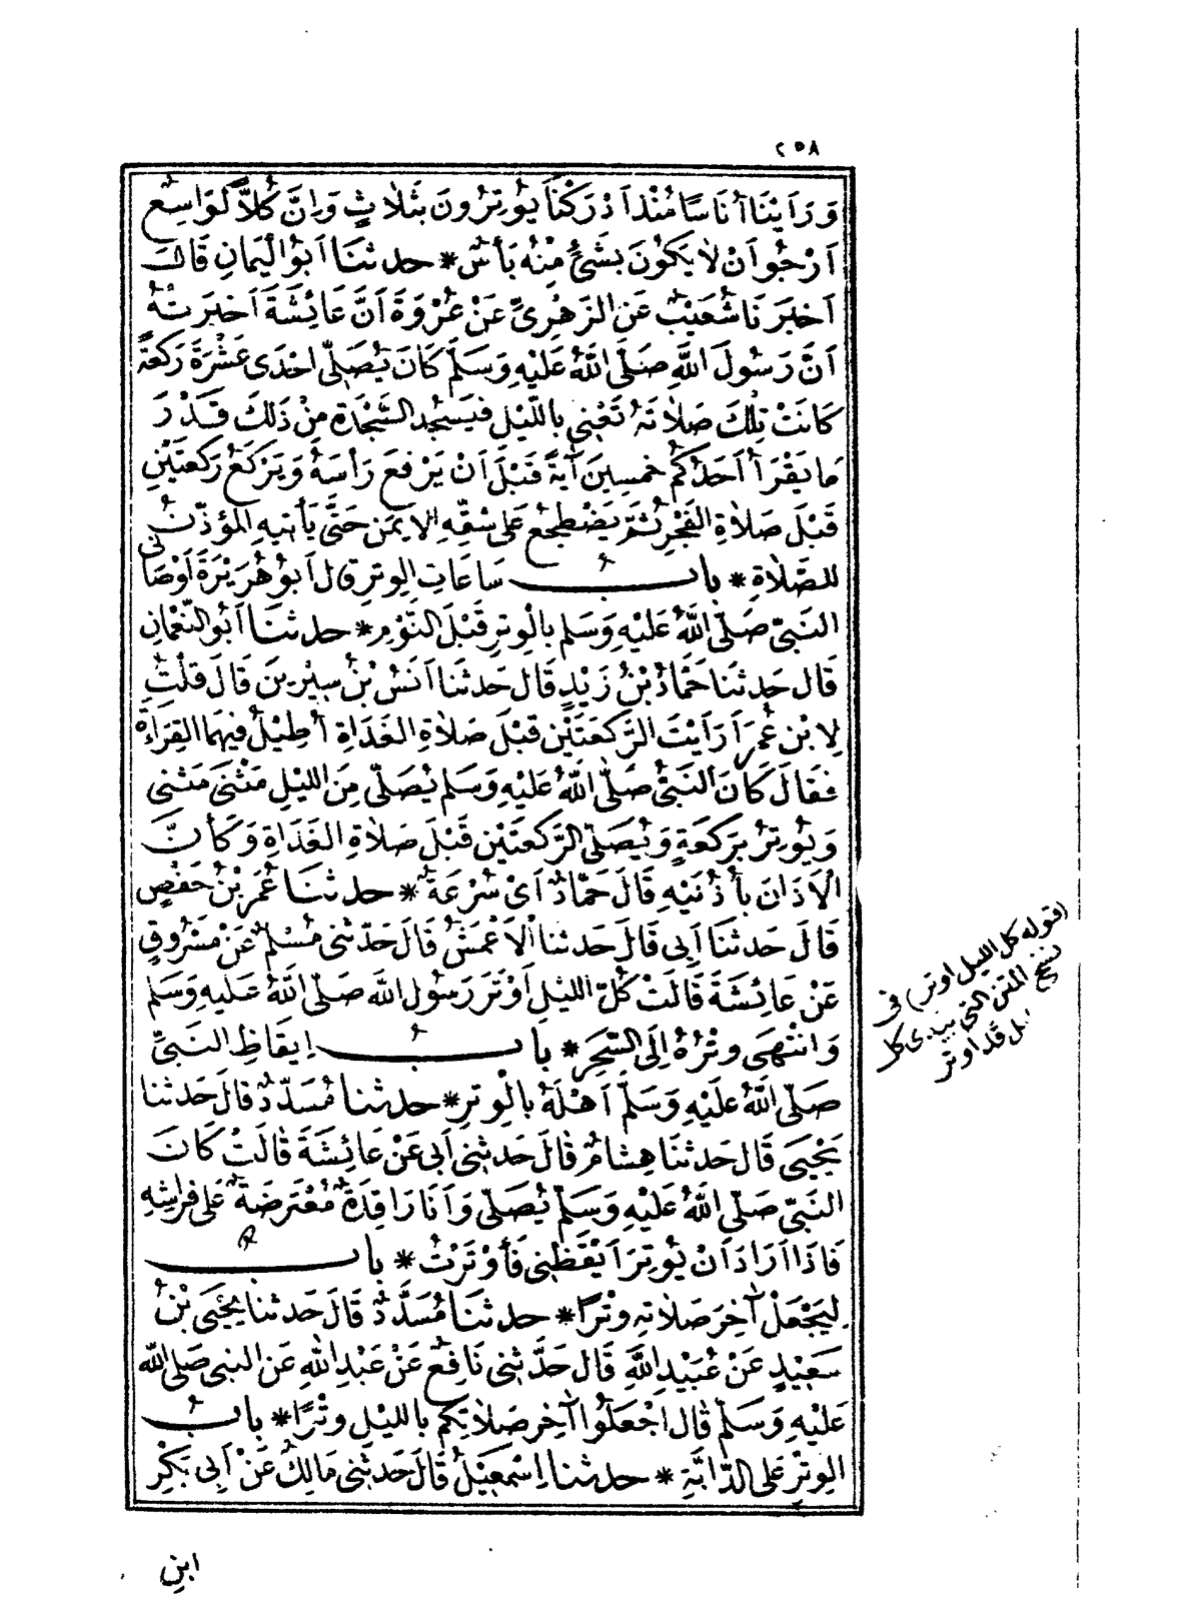 ٢٥٨
وَرَأَيْنَا أُنَاسًا مُنْذُ أَدْرَكْنَا يُوتِرُونَ بِثَلاٰثٍ وَاِنَّ كُلاًّ لَوَاسِعٌ
اَرْجُو اَنْ لاٰ يَكُونَ بِشَيْءٍ مِنْهُ بَأْسٌ * حدثنَا اَبُو الْيَمَانِ قَالَ
اَخْبَرَنَا شُعَيْبٌ عَنِ الزُّهْرِىِّ عَنْ عُرْوَةَ اَنَّ عَائِشَةَ اَخْبَرَتْهُ
اَنَّ رَسُولَ اللَّهِ صَلَّى اللَّهُ عَلَيْهِ وَسَلَّمَ كَانَ يُصَلِّى اِحْدَى عَشْرَةَ رَكْعَةً
كَانَتْ تِلْكَ صَلاٰتَهُ تَعْنِى بِاللَّيْلِ فَيَسْجُدُ السَّجْدَةَ مِنْ ذَلِكَ قَدْرَ
مَا يَقْرَأُ اَحَدُكُمْ خَمْسِينَ آيَةً قَبْلَ اَنْ يَرْفَعَ رَأْسَهُ وَيَرْكَعُ رَكْعَتَيْنِ
قَبْلَ صَلاٰةِ الفَجْرِ ثُمَّ يَضْطَجِعُ عَلَى شِقِّهِ الاَيْمَنِ حَتَّى يَأْتِيَهِ المُؤَذِّنُ
لِلصَّلاٰةِ * بابُ سَاعَاتِ الوِتْرِ قال اَبُو هُرَيْرَةَ اَوْصَانِى
النَّبِىّ صَلَّى اللَّهُ عَلَيْهِ وَسَلم بِالْوِتْرِ قَبْلَ النَّوْمِ * حدثنَا اَبُو النُّعْمَانِ
قَال حَدثنَا حَمَّادُ بْنُ زَيْدٍ قَال حَدثنَا اَنَسُ بْنُ سِيْرِينَ قَالَ قُلْتُ
لِابْنِ عُمَرَ اَرَاَيْتَ الرَّكْعَتَيْنِ قَبْلَ صَلاٰةِ الغَدَاةِ أُطِيْلُ فِيهِمَا القِرَاءَةَ
فقَالَ كَانَ النَّبِىُّ صَلَّى اللَّهُ عَلَيْهِ وَسَلم يُصَلِّى مِنَ اللَّيْلِ مَثْنَى مَثنى
وَيُوتِرُ بِرَكْعَةٍ وَيُصَلِّى الرَّكْعَتَيْنِ قَبْلَ صَلاٰةِ الغَدَاةِ وَكَأَنَّ
الْاَذَانَ بِأُذُنَيْهِ قَالَ حَمَّادٌ اَىْ سُرْعَةً * حدثنَا عُمَرُ بْنُ حَفْصٍ
قَالَ حَدثنَا اَبِى قَالَ حَدثنا الْاَعْمَشُ قَالَ حَدّثنى مُسْلِمٌ عَنْ مَسْرُوقٍ
عَنْ عَائِشَةَ قَالَتْ كُلَّ اللَّيْلِ اَوْتَرَ رَسُولُ اللَّهِ صَلَّى اللَّهُ عَلَيهِ وَسَلَم
وَانْتَهَى وِتْرُهُ اِلَى السَّحَرِ * بابُ اِيقَاظِ النَّبِىِّ
صَلَّى اللَّهُ عَلَيْهِ وَسَلَّمَ اَهْلَهُ بِالْوِتْرِ * حدثنا مُسَدَّدٌ قَالَ حَدثنا
يَحْيَى قَال حَدثنَا هِشَامٌ قَالَ حَدثنى اَبِى عَنْ عَائِشَةَ قَالَتْ كَانَ
النَّبِىّ صَلَّى اللَّهُ عَلَيْهِ وَسَلَّمَ يُصَلِّى وَاَنَا رَاقِدَةٌ مُعْتَرِضَةً عَلَى فِرَاشِهِ
فَاِذَا اَرَادَ اَنْ يُوتِرَ اَيْقَظَنِى فَأَوْتَرْتُ * باب
لِيَجْعَلْ آخِرَ صَلاٰتِهِ وِتْرًا * حدثنَا مُسَدَّدٌ قَالَ حَدثنا يَحْيَى بْنُ
سَعِيْدٍ عَنْ عُبَيْدِ اللَّهِ قَالَ حَدَّثنِى نَافِعٌ عَنْ عَبْدِ اللهِ عَنِ النبى صَلى الله
عَلَيْهِ وَسَلَّم قال اجْعَلُوا آخِرَ صَلاٰتِكُمْ بالليْلِ وِتْرًا * بابُ
الوِتْرِ عَلَى الدَّابَّةِ * حدثنا اِسْمَعِيْلُ قَالَ حَدثنى مَالِكٌ عَنْ اَبِى بَكْرِ
ابنِ
(قوله كل الليل اوتر) فى
نسخ المتن التى بيدى كل
ليل قد اوتر